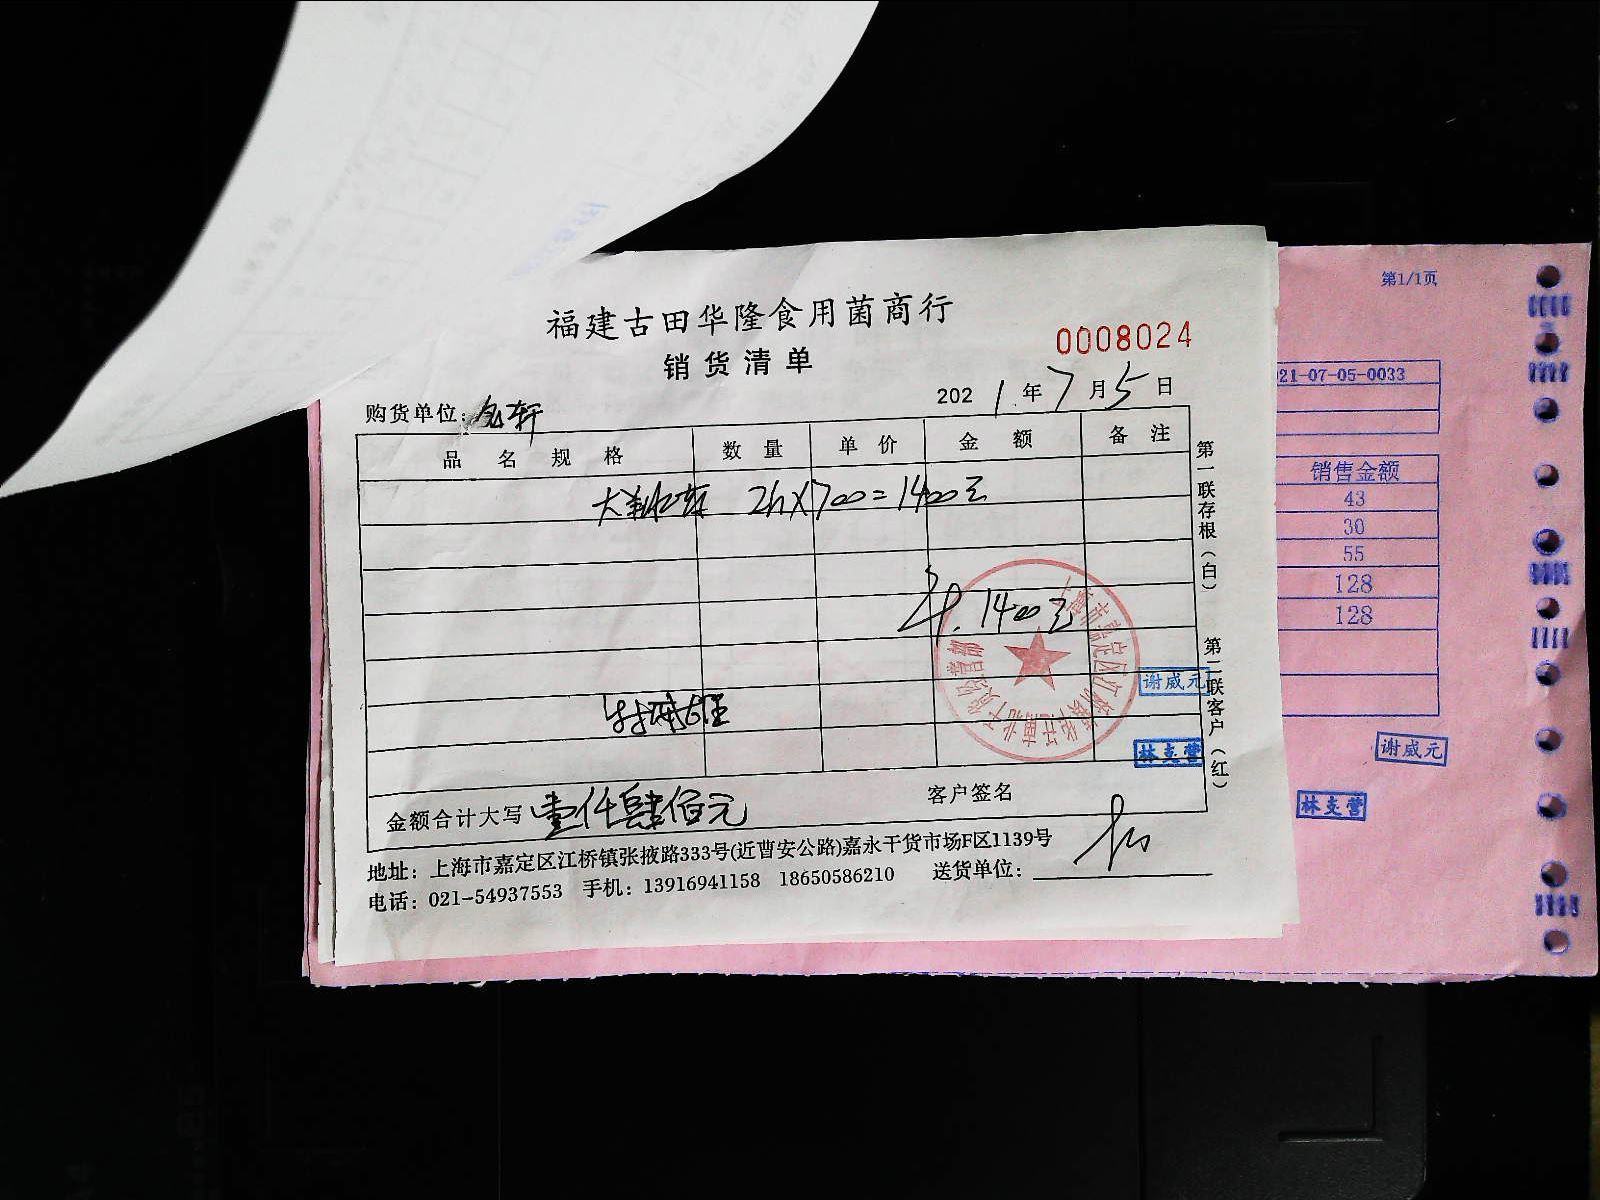 福建古田华隆食用菌商行
销货清单
0008024
购货单位：
2021年7月5日
品名规格 数量 单价 金额 备注
2h×700=1400元
1400元
谢威元
林支营
金额合计大写 壹仟肆佰元
客户签名
地址：上海市嘉定区江桥镇张掖路333号(近曹安公路)嘉永干货市场F区1139号
电话：021-54937553 手机：13916941158 18650586210 送货单位：
第一联存根（白）
第二联客户（红）
第1/1页
21-07-05-0033
销售金额
43
30
55
128
128
谢威元
林支营